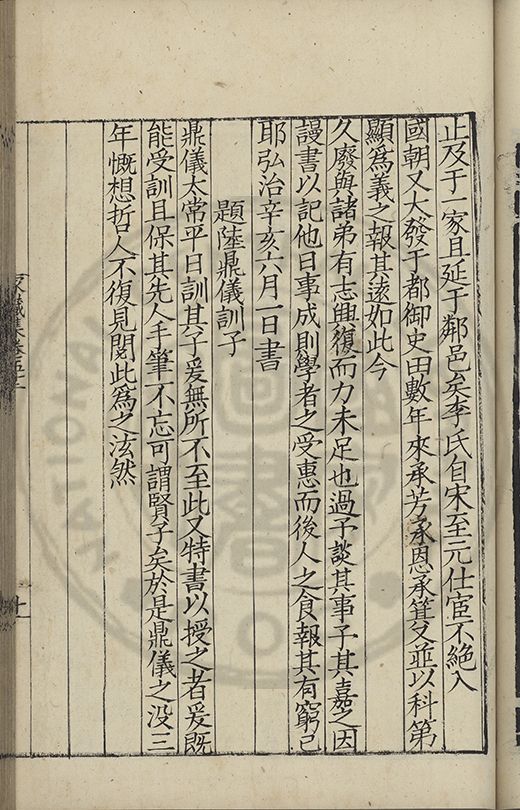 止及于一家且延于鄰邑矣李氏自宋至元仕宦不絶入
國朝又大發于都御史田數年來承芳承恩承箕父並以科第
顯爲義之報其遠如此今
久廢與諸弟有志興復而力未足也過予談其事予其嘉之因
謾書以記他日事成則學者之受惠而後人之食報其有窮已
耶弘治辛亥六月一日書
題陸鼎儀訓子
鼎儀太常平日訓其子爰無所不至此又特書以授之者爰既
能受訓且保其先人手筆不忘可謂賢子矣於是鼎儀之没三
年慨想哲人不復見閲此爲之泫然
家藏集卷五十二
十一